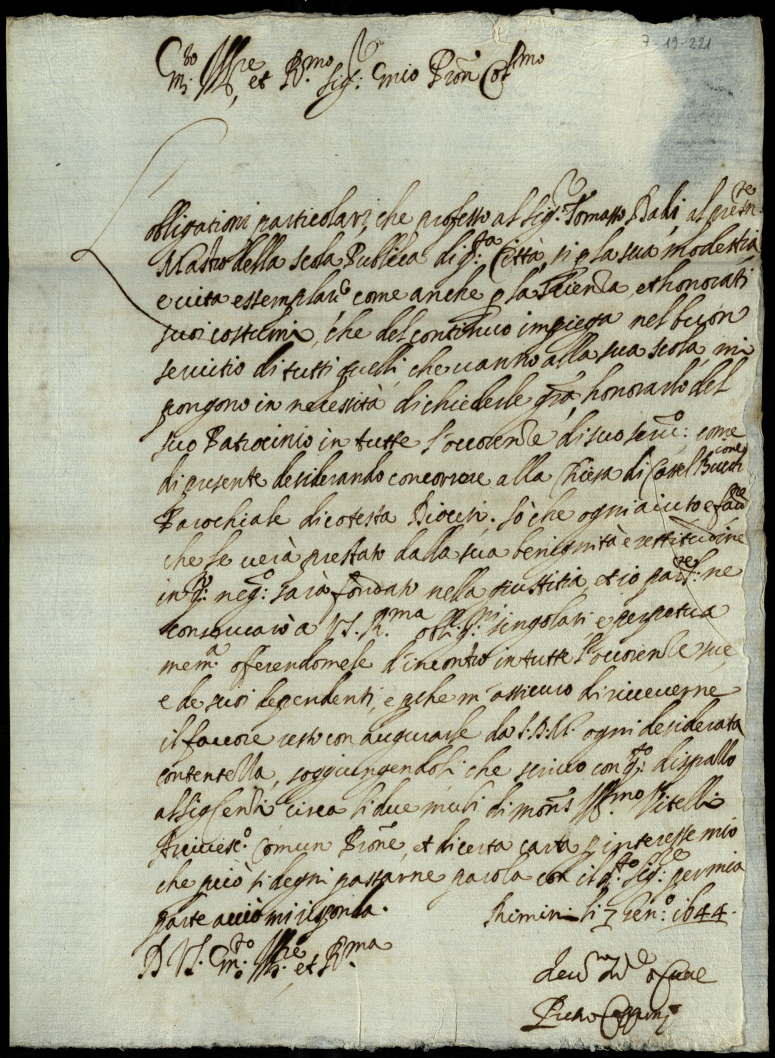 7-19-221
M.to Ill.re et R.mo Sig.r mio P.ron Col.mo
L'obligationi particolari, che professo al Sig.r Tomasso Balsi, al pres.te
Mastro della scola Publica di q.ta Città, si p la sua modestia
e vita essemplare come anche p la scienza, et honorati
suoi costumi, che del continuo impiega nel buon
servitio di tutti quelli, che vanno alla sua scola, mi
pongono in necessità di chiederle gra, honorarlo del
suo Patrocinio in tutte l'occorenze di suo serv.o: come
di presente desiderando concorrere alla Chiesa di Castel
Parochiale di cotesta Diocesi. Sò che ogni aiuto e favore
che le verà prestato dalla sua benignità e rettitudine
in q.o neg.o: sarà fondato nella giustitia et io par.te ne
conservarò a V.S. R.ma obl.g.ni singolari e perpetua
mem.a oferendomele d'incontro in tutte l'occorenze sue
e de suoi dependenti, e p che m'assicuro di riceverne
il favore resto con augurarle da S.D.M. ogni desiderata
contentezza, soggiungendoli che scrivo con q.to dispallo
al Sig. circa li due muli di mons. Ill.mo Vitelli
Arcivesc.o comun P.rone, et di certa carta p interesse mio
che però si degni passarne parola con il d.to Sig.re per mia
parte acciò mi risponda. Rimini li 7 Gen.o 1644.
D V.S. M.to Ill.re et R.ma
Dev.mo
Pietro